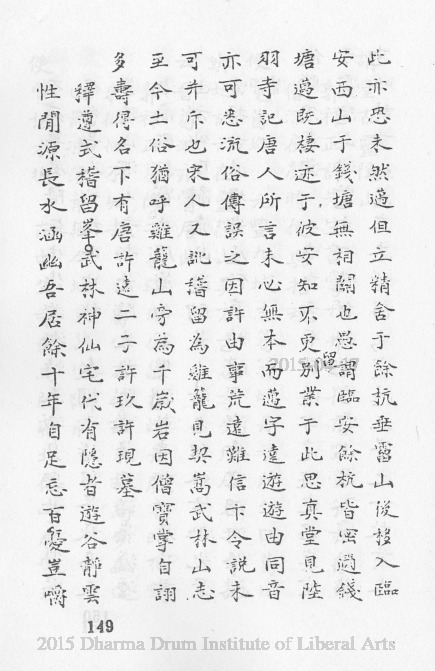 此亦恐未然邁但立精舍于餘杭垂霤山後移入臨
安西山于錢塘無相關也愚謂臨安餘杭皆密邇錢
塘邁既棲迹于彼安知不更別業于此思真堂見陸
羽寺記唐人所言未必無本而邁字遠遊遊由同音
亦可悉流俗傳誤之因許由事荒遠難信卞令說未
可并斥也宋人又訛稽留為雞籠見契嵩武林山志
至今土俗猶呼雞籠山旁為千歲岩因僧寶掌自詡
多壽得名下有唐許遠二子許玫許現墓
釋遵式稽留峯武林神仙宅代有隱者遊谷靜雲
性閒源長水涵幽吾居餘十年自足忘百憂豈嚼
149
2015.09.17
留
2015 Dharma Drum Institute of Liberal Arts